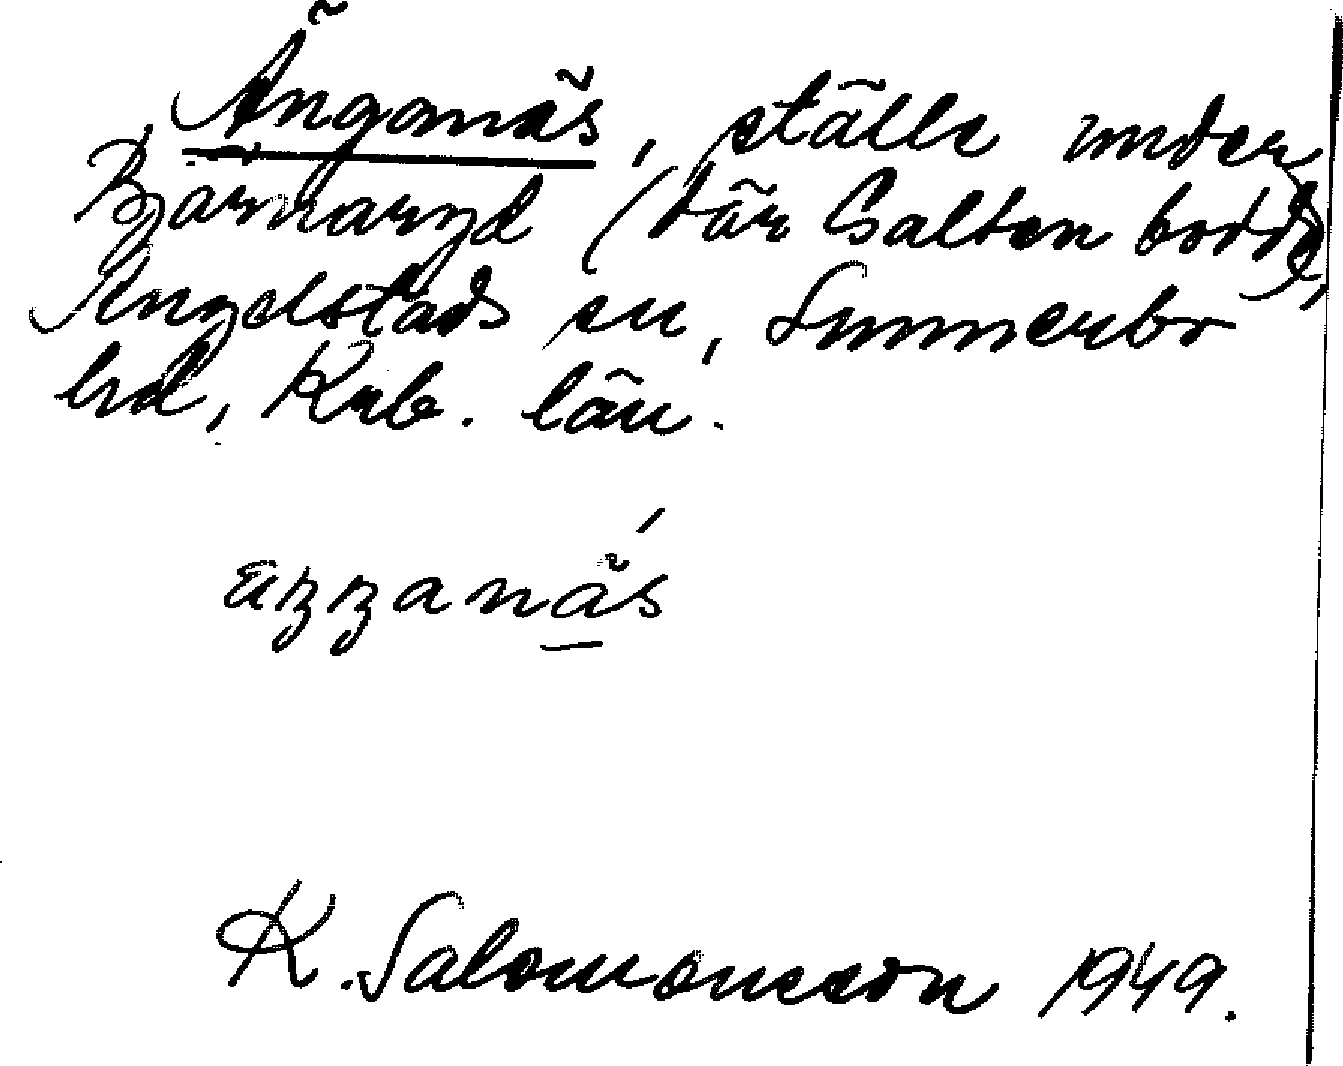 Änganäs, ställe under
Bjärnaryd (där Galten bodde),
Angelstads sn, Sunnerbo
hd, Krb. län.
äŋŋanä́s
K. Salomonsson 1949.